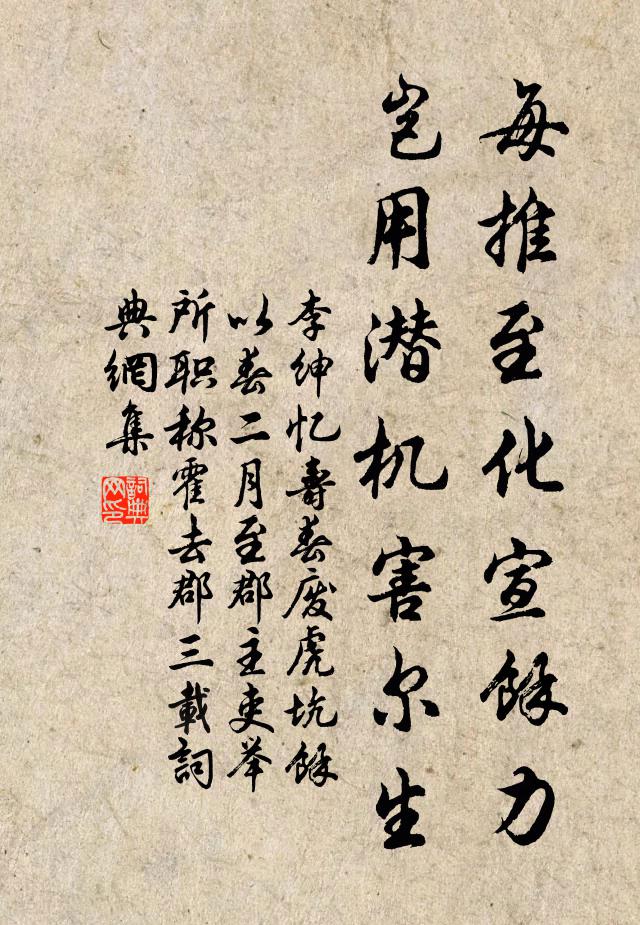 每推至化宣餘力
岂用潜机害尔生
李绅忆寿春废虎坑餘
以春二月至郡主吏举
所职称霍去郡三載詞
典網集
詞典网印